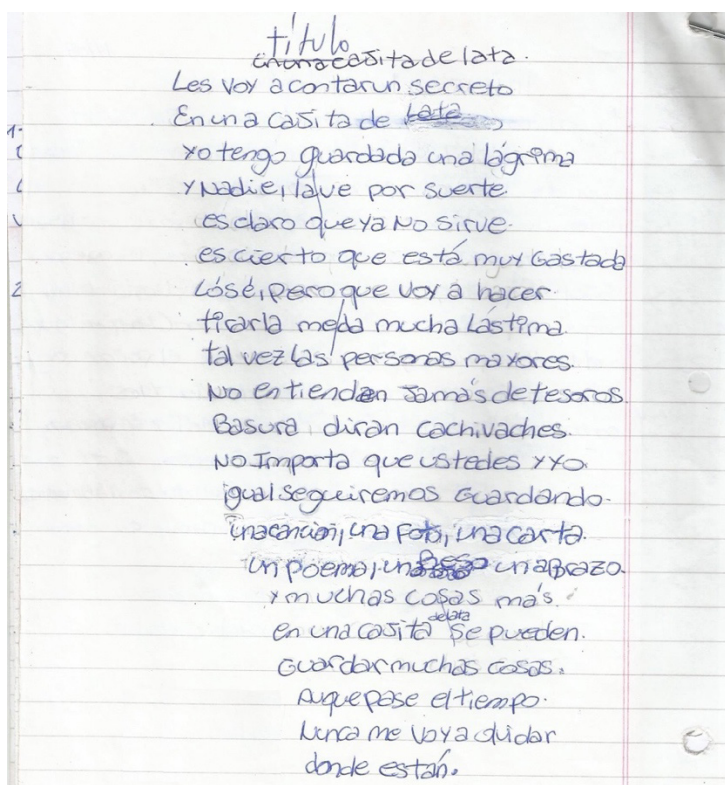 título
en una casita de lata.
Les voy a contar un secreto
En una casita de Lata
yo tengo guardada una lágrima
y Nadie, la ve por suerte.
es claro que ya No sirve.
es cierto que está muy Gastada
Lo sé, pero que voy a hacer.
tirarla me da mucha Lástima.
tal vez las personas mayores.
No entienden Jamás de tesoros.
Basura diran cachivaches.
No Importa que ustedes y yo.
igual seguiremos Guardando.
una canción, una foto, una carta.
un poema, un Beso un aBrazo.
y muchas cosas más.
en una casita de lata se pueden.
Guardar muchas cosas.
Auque pase el tiempo.
Nunca me voy a olvidar
donde están.